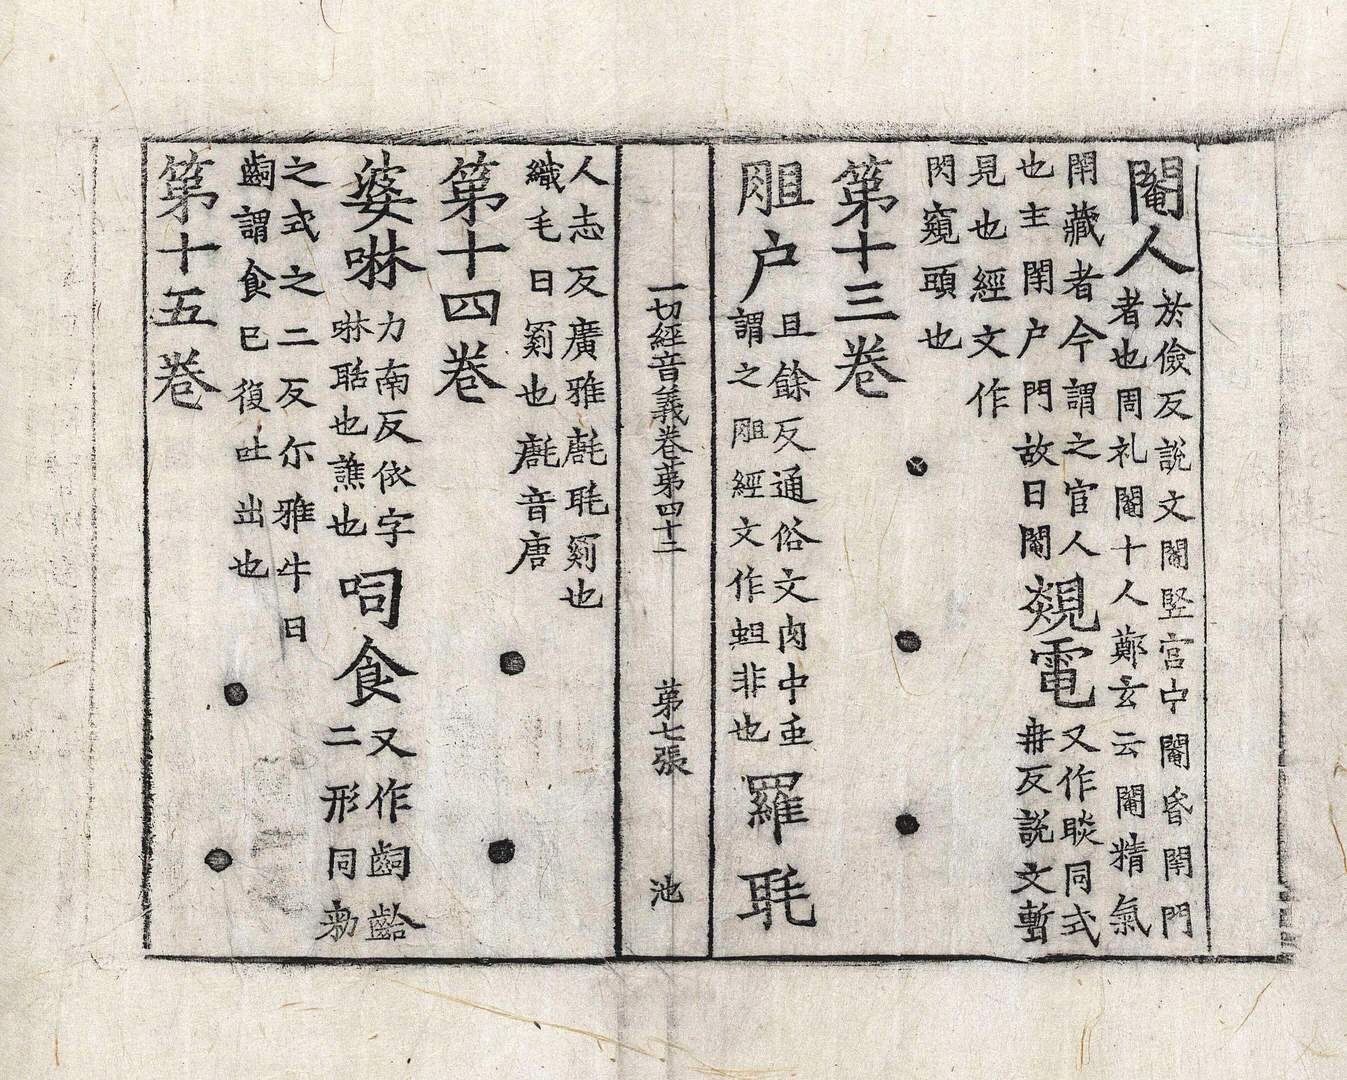 閹人於儉反說文閹竪宮中閹昏閉門
者也周礼閹十人鄭玄云閹精氣
閉藏者今謂之官人
也主閉户門故曰閹
覢電又作睒同式
冉反說文暫
見也經文作
閃窺頭也
第十三卷
胆户且餘反通俗文肉中䖝
謂之胆經文作蛆非也
羅毦
一切經音義卷第四十二 第七張 池
人志反廣雅㲮毦罽也
織毛曰罽也㲮音唐
第十四卷
婆啉力南反依字
啉聒也譙也
呞食又作齝齡
二形同勑
之式之二反尒雅牛曰
齝謂食已復吐出也
第十五卷